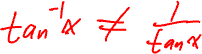 tan⁻¹x ≠ 1/tan x